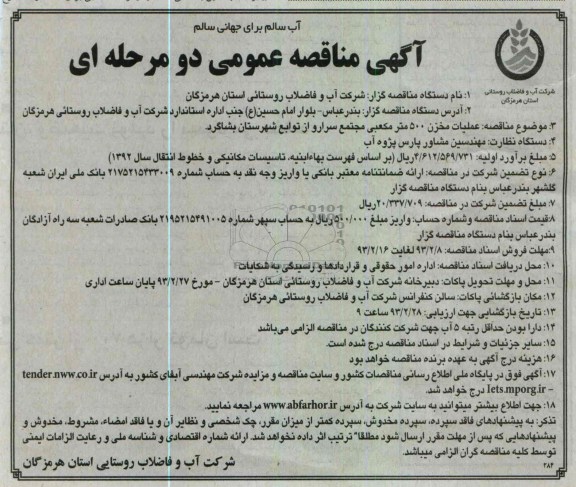 آب سالم برای جهانی سالم
آگهی مناقصه عمومی دو مرحله ای
شرکت آب و فاضلاب روستائی
استان هرمزگان
۱: نام دستگاه مناقصه گزار: شرکت آب و فاضلاب روستائی استان هرمزگان
۲: آدرس دستگاه مناقصه گزار: بندرعباس- بلوار امام حسین(ع) جنب اداره استاندارد شرکت آب و فاضلاب روستائی هرمزگان
۳: موضوع مناقصه: عملیات مخزن ۵۰۰ متر مکعبی مجتمع سرارو از توابع شهرستان بشاگرد.
۴: دستگاه نظارت: مهندسین مشاور پارس پژوه آب
۵: مبلغ برآورد اولیه: ۴/۶۱۲/۵۶۹/۷۳۱ریال (بر اساس فهرست بهاءابنیه، تاسیسات مکانیکی و خطوط انتقال سال ۱۳۹۲)
۶: نوع تضمین شرکت در مناقصه: ارائه ضمانتنامه معتبر بانکی یا واریز وجه نقد به حساب شماره ۲۱۷۵۲۱۵۴۳۳۰۰۹ بانک ملی ایران شعبه
گلشهر بندرعباس بنام دستگاه مناقصه گزار
۷: مبلغ تضمین شرکت در مناقصه: ۲۰/۳۳۷/۷۰۹ریال
۸:قیمت اسناد مناقصه وشماره حساب: واریز مبلغ ۵۰۰/۰۰۰ ریال به حساب سپهر شماره ۲۱۹۵۲۱۵۴۹۱۰۰۵ بانک صادرات شعبه سه راه آزادگان
بندرعباس بنام دستگاه مناقصه گزار
۹:مهلت فروش اسناد مناقصه: ۹۳/۲/۸ لغایت ۹۳/۲/۱۶
۱۰: محل دریافت اسناد مناقصه: اداره امور حقوقی و قراردادها و رسیدگی به شکایات
۱۱: محل و مهلت تحویل پاکات: دبیرخانه شرکت آب و فاضلاب روستائی استان هرمزگان - مورخ ۹۳/۲/۲۷ پایان ساعت اداری
۱۲: مکان بازگشائی پاکات: سالن کنفرانس شرکت آب و فاضلاب روستائی هرمزگان
۱۳: تاریخ بازگشایی جهت ارزیابی: ۹۳/۲/۲۸ ساعت ۹
۱۴: دارا بودن حداقل رتبه ۵ آب جهت شرکت کنندگان در مناقصه الزامی می‌باشد
۱۵: سایر جزئیات و شرایط در اسناد مناقصه درج شده است.
۱۶: هزینه درج آگهی به عهده برنده مناقصه خواهد بود
۱۷: آگهی فوق در پایگاه ملی اطلاع رسانی مناقصات کشور و سایت مناقصه و مزایده شرکت مهندسی آبفای کشور به آدرس tender.nww.co.ir
- Iets.mporg.ir درج خواهد شد.
۱۸: جهت اطلاع بیشتر میتوانید به سایت شرکت به آدرس www.abfarhor.ir مراجعه نمایید.
تذکر: به پیشنهادهای فاقد سپرده، سپرده مخدوش، سپرده کمتر از میزان مقرر، چک شخصی و نظایر آن و یا فاقد امضاء، مشروط، مخدوش و
پیشنهادهایی که پس از مهلت مقرر ارسال شود مطلقا" ترتیب اثر داده نخواهد شد. ارائه شماره اقتصادی و شناسه ملی و رعایت الزامات ایمنی
توسط کلیه مناقصه گران الزامی میباشد.
شرکت آب و فاضلاب روستایی استان هرمزگان
۲۸۴